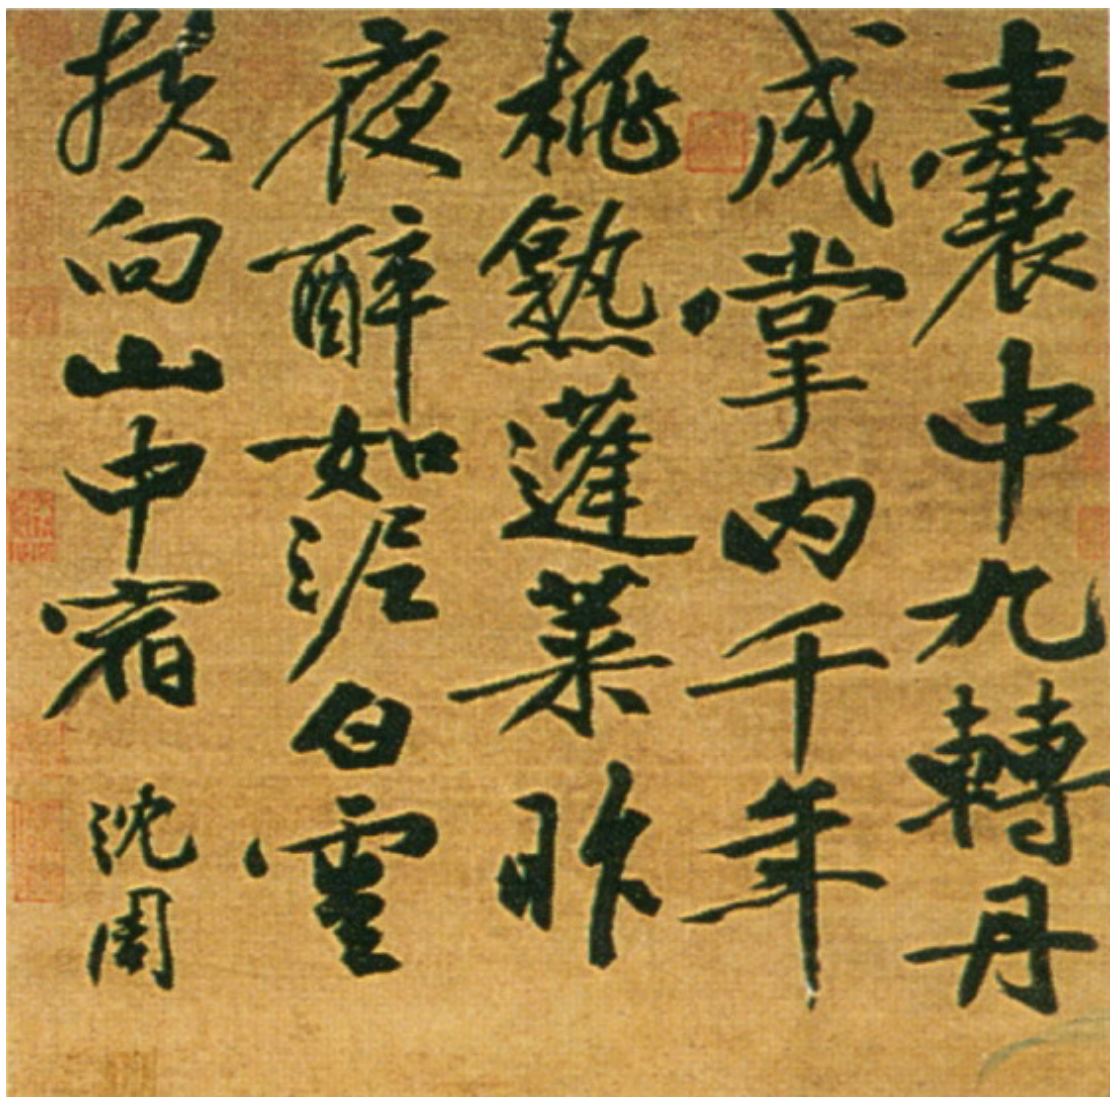 囊中九轉丹
成掌内千年
桃熟蓬萊昨
夜醉如泥白雲
扶向山中宿 沈周